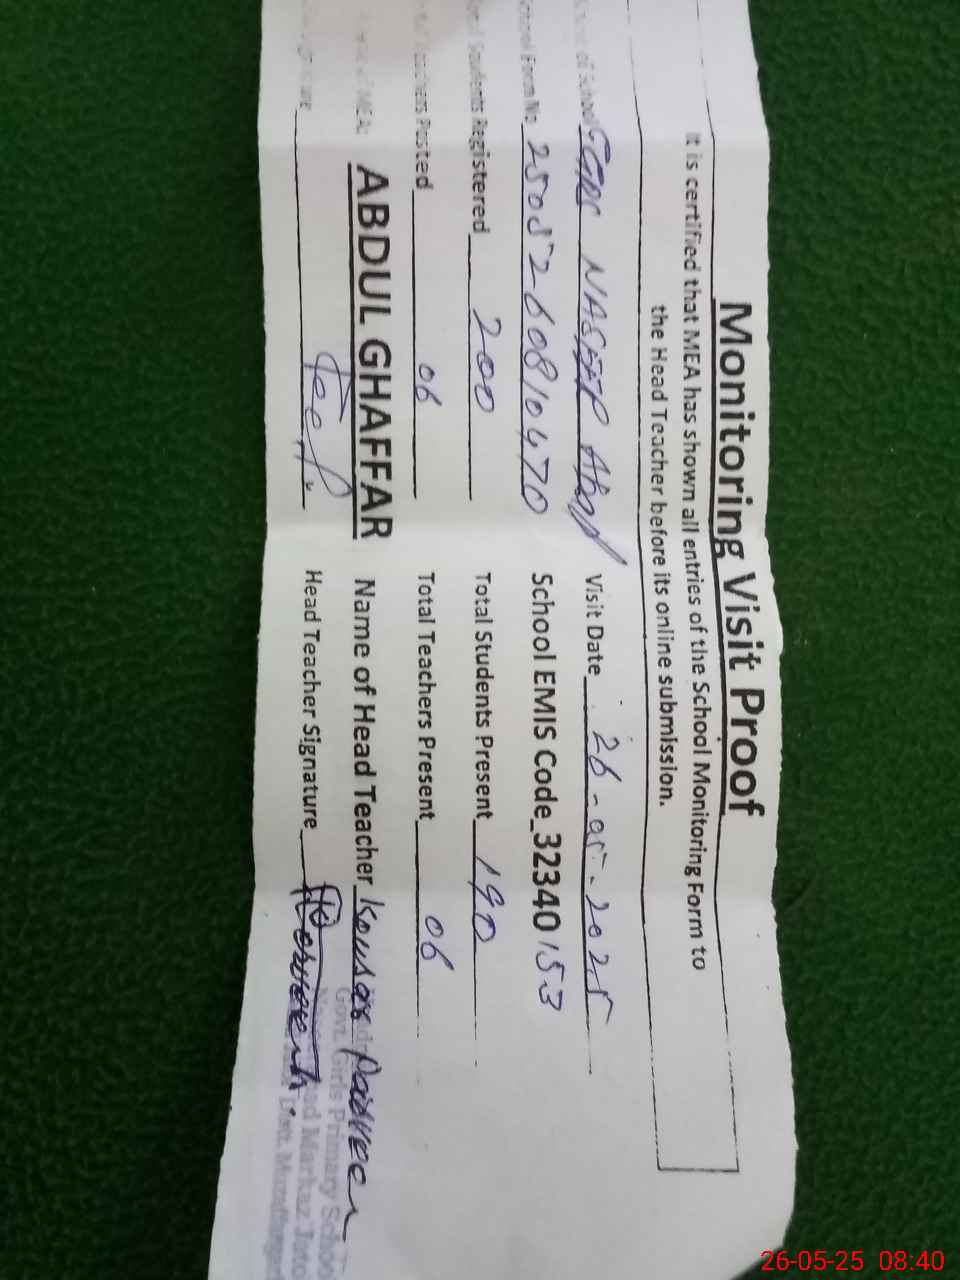 Monitoring Visit Proof
It is certified that MEA has shown all entries of the School Monitoring Form to
the Head Teacher before its online submission.
of School GGPS NASEER Abad Visit Date 26-05-2025
School Form No. 2505260810470 School EMIS Code_32340153
Students Registered 200 Total Students Present 190
Teachers Posted 06 Total Teachers Present 06
MEA: ABDUL GHAFFAR Name of Head Teacher Kousar Parveen
Head Teacher Signature
Govt. Girls Primary School
Markaz Jatoi
Distt. Muzaffargarh
26-05-25 08:40